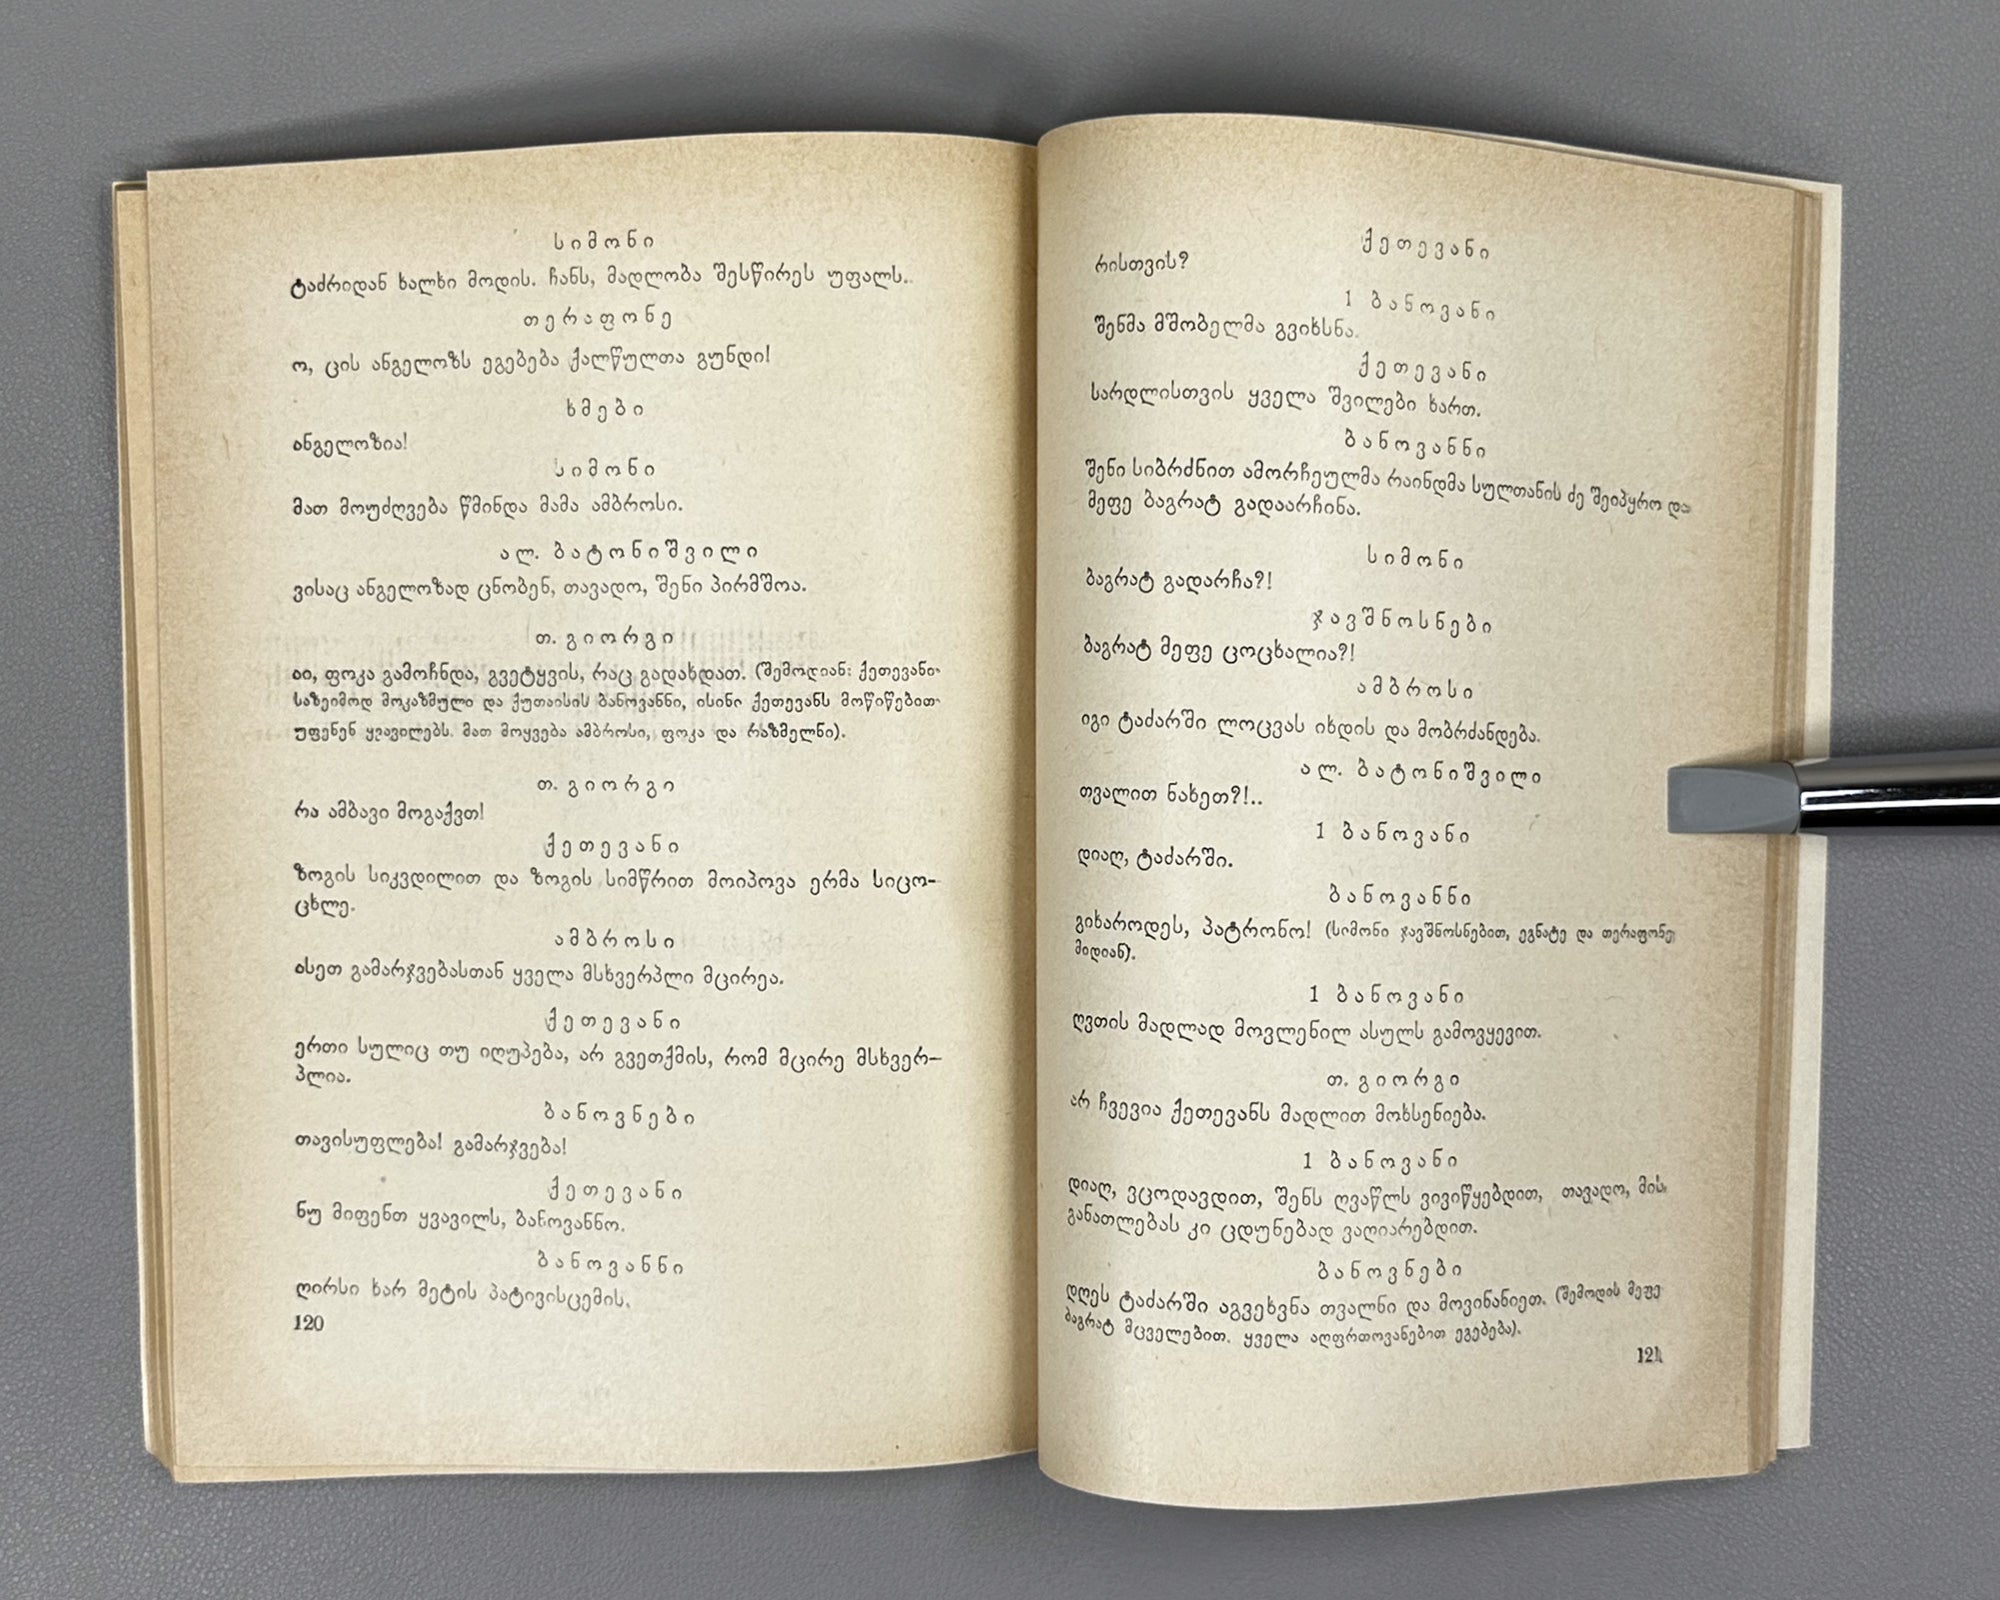 სიმონი
ტაძრიდან ხალხი მოდის. ჩანს, მადლობა შესწირეს უფალს.
თერაფონე
ო, ცის ანგელოზს ეგებება ქალწულთა გუნდი!
ხმები
ანგელოზია!
სიმონი
მათ მოუძღვება წმინდა მამა ამბროსი.
ალ. ბატონიშვილი
ვისაც ანგელოზად ცნობენ, თავადო, შენი პირმშოა.
თ. გიორგი
აი, ფოკა გამოჩნდა, გვეტყვის, რაც გადახდათ. (შემოდიან: ქეთევანი
საზეიმოდ მოკაზმული და ქუთაისის ბანოვანნი, ისინი ქეთევანს მოწიწებით
უფენენ ყვავილებს. მათ მოყვება ამბროსი, ფოკა და რაზმელნი).
თ. გიორგი
რა ამბავი მოგაქვთ!
ქეთევანი
ზოგის სიკვდილით და ზოგის სიმწრით მოიპოვა ერმა სიცო-
ცხლე.
ამბროსი
ასეთ გამარჯვებასთან ყველა მსხვერპლი მცირეა.
ქეთევანი
ერთი სულიც თუ იღუპება, არ გვეთქმის, რომ მცირე მსხვერ-
პლია.
ბანოვნები
თავისუფლება! გამარჯვება!
ქეთევანი
ნუ მიფენთ ყვავილს, ბანოვანნო.
ბანოვანნი
ღირსი ხარ მეტის პატივისცემის.
120
ქეთევანი
რისთვის?
1 ბანოვანი
შენმა მშობელმა გვიხსნა.
ქეთევანი
სარდლისთვის ყველა შვილები ხართ.
ბანოვანნი
შენი სიბრძნით ამორჩეულმა რაინდმა სულთანის ძე შეიპყრო და
მეფე ბაგრატ გადაარჩინა.
სიმონი
ბაგრატ გადარჩა?!
ჯავშნოსნები
ბაგრატ მეფე ცოცხალია?!
ამბროსი
იგი ტაძარში ლოცვას იხდის და მობრძანდება.
ალ. ბატონიშვილი
თვალით ნახეთ?!..
1 ბანოვანი
დიაღ, ტაძარში.
ბანოვანნი
გიხაროდეს, პატრონო! (სიმონი ჯავშნოსნებით, ეგნატე და თერაფონე
მიდიან).
1 ბანოვანი
ღვთის მადლად მოვლენილ ასულს გამოვყევით.
თ. გიორგი
არ ჩვევია ქეთევანს მადლით მოხსენიება.
1 ბანოვანი
დიაღ, ვცოდავდით, შენს ღვაწლს ვივიწყებდით, თავადო, მის
განათლებას კი ცდუნებად ვაღიარებდით.
ბანოვნები
დღეს ტაძარში აგვეხვნა თვალნი და მოვინანიეთ. (შემოდის მეფე
ბაგრატ მცველებით. ყველა აღფრთოვანებით ეგებება).
121